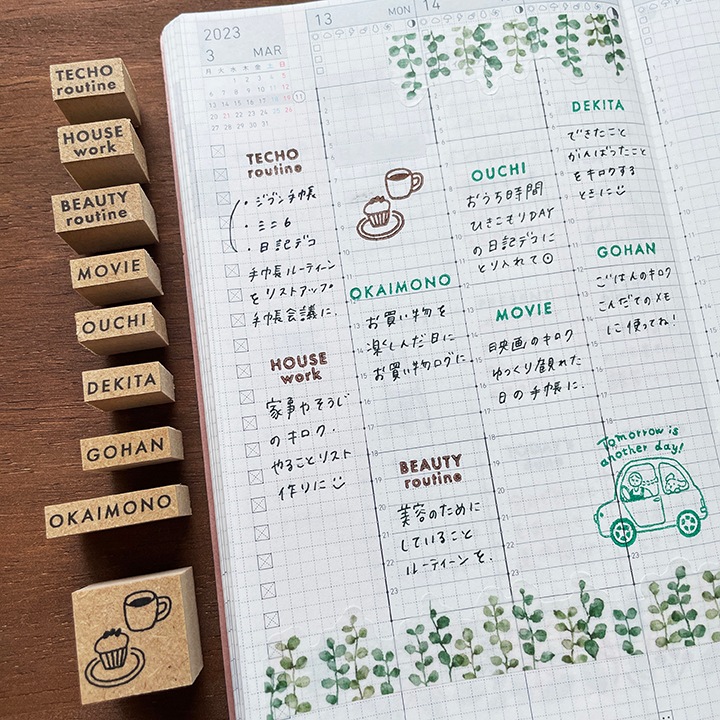 TECHO
routine
HOUSE
work
BEAUTY
routine
MOVIE
OUCHI
DEKITA
GOHAN
OKAIMONO
2023
3 MAR
月 火 水 木 金 土 日
1 2 3 4 5
6 7 8 9 10 11 12
13 14 15 16 17 18 19
20 21 22 23 24 25 26
27 28 29 30 31
11
13 MON
14
TECHO
routine
・ジブン手帳
・ミニ6
・日記デコ
手帳ルーティーン
をリストアップ。
手帳会議に.
HOUSE
work
家事やそうじ
のキロク.
やることリスト
作りに
OKAIMONO
お買い物を
楽しんだ日に
お買い物ログに
BEAUTY
routine
美容のために
していること
ルーティーンを.
OUCHI
おうち時間
ひきこもりDAY
の日記デコに
とり入れて
MOVIE
映画のキロク
ゆっくり観れた
日の手帳に.
DEKITA
できたこと
がんばったこと
をキロクする
ときに
GOHAN
ごはんのキロク
こんだてのメモ
に使ってね!
Tomorrow is
another day!